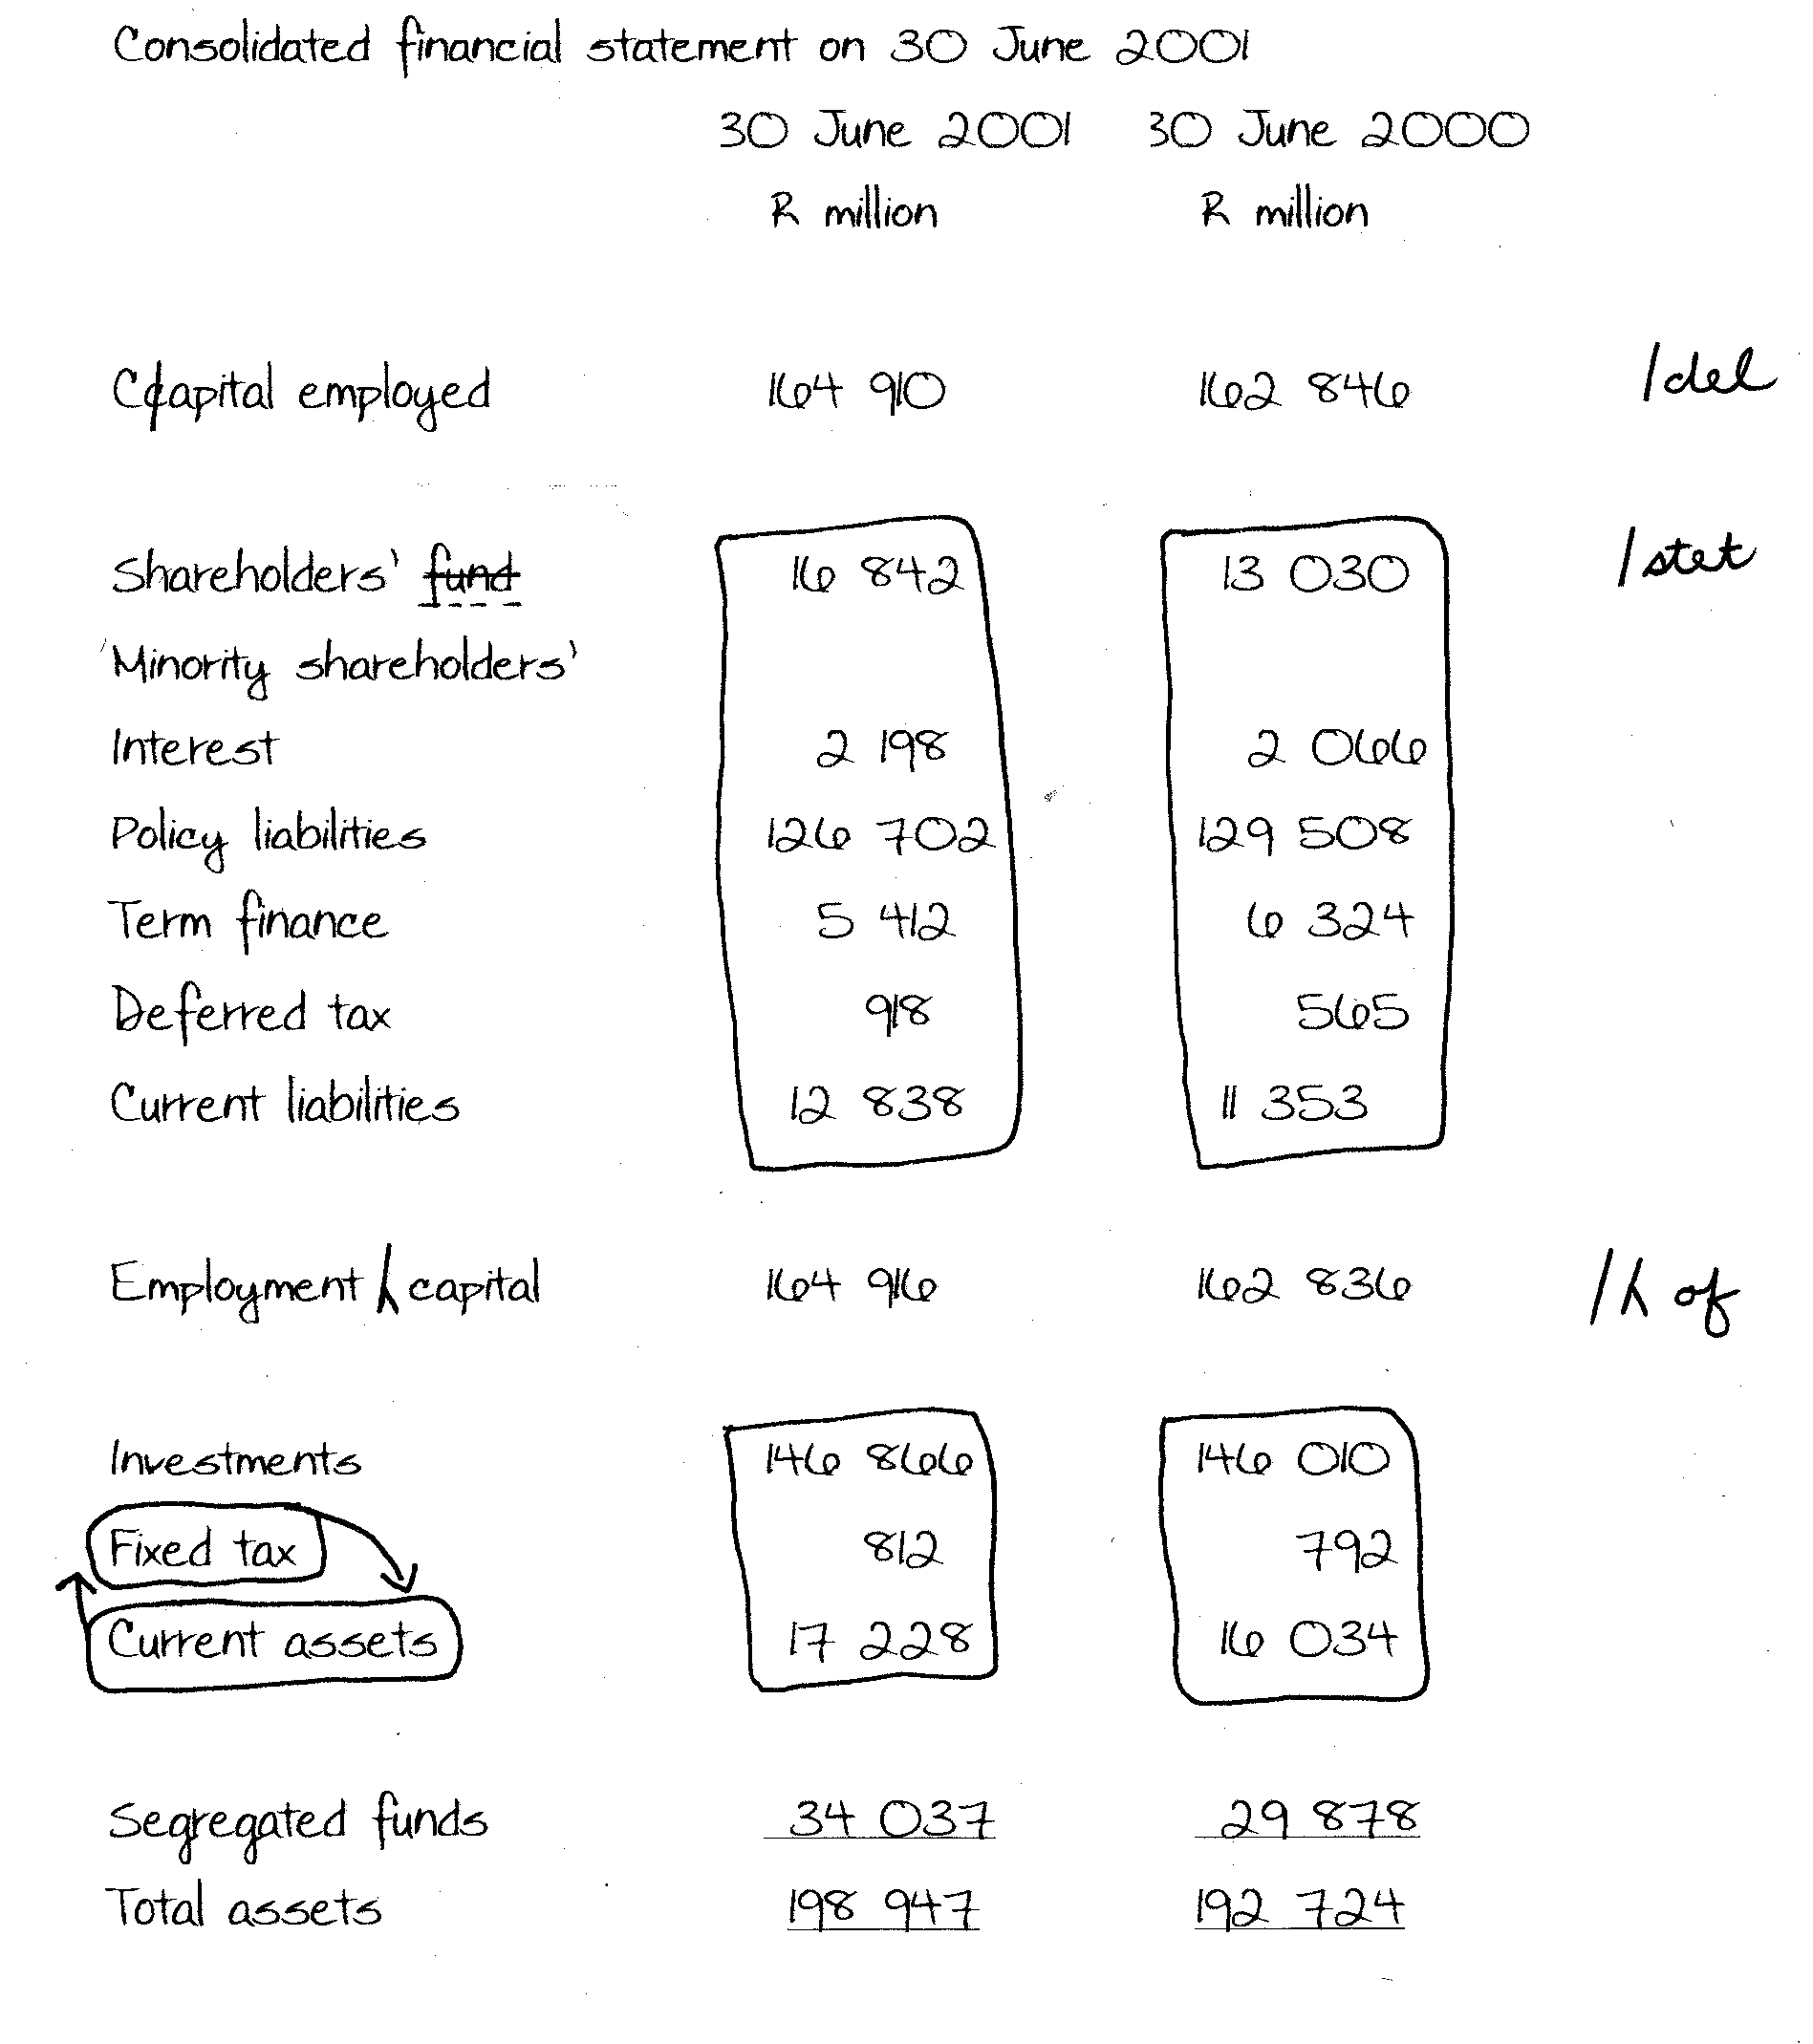 Consolidated financial statement on 30 June 2001
30 June 2001 30 June 2000
R million R million
Ccapital employed 164 910 162 846 /del
Shareholders' fund 16 842 13 030 /stet
'Minority shareholders'
Interest 2 198 2 066
Policy liabilities 126 702 129 508
Term finance 5 412 6 324
Deferred tax 918 565
Current liabilities 12 838 11 353
Employment ⁁ capital 164 916 162 836 /⁁ of
Investments 146 866 146 010
Fixed tax 812 792
Current assets 17 228 16 034
Segregated funds 34 037 29 878
Total assets 198 947 192 724